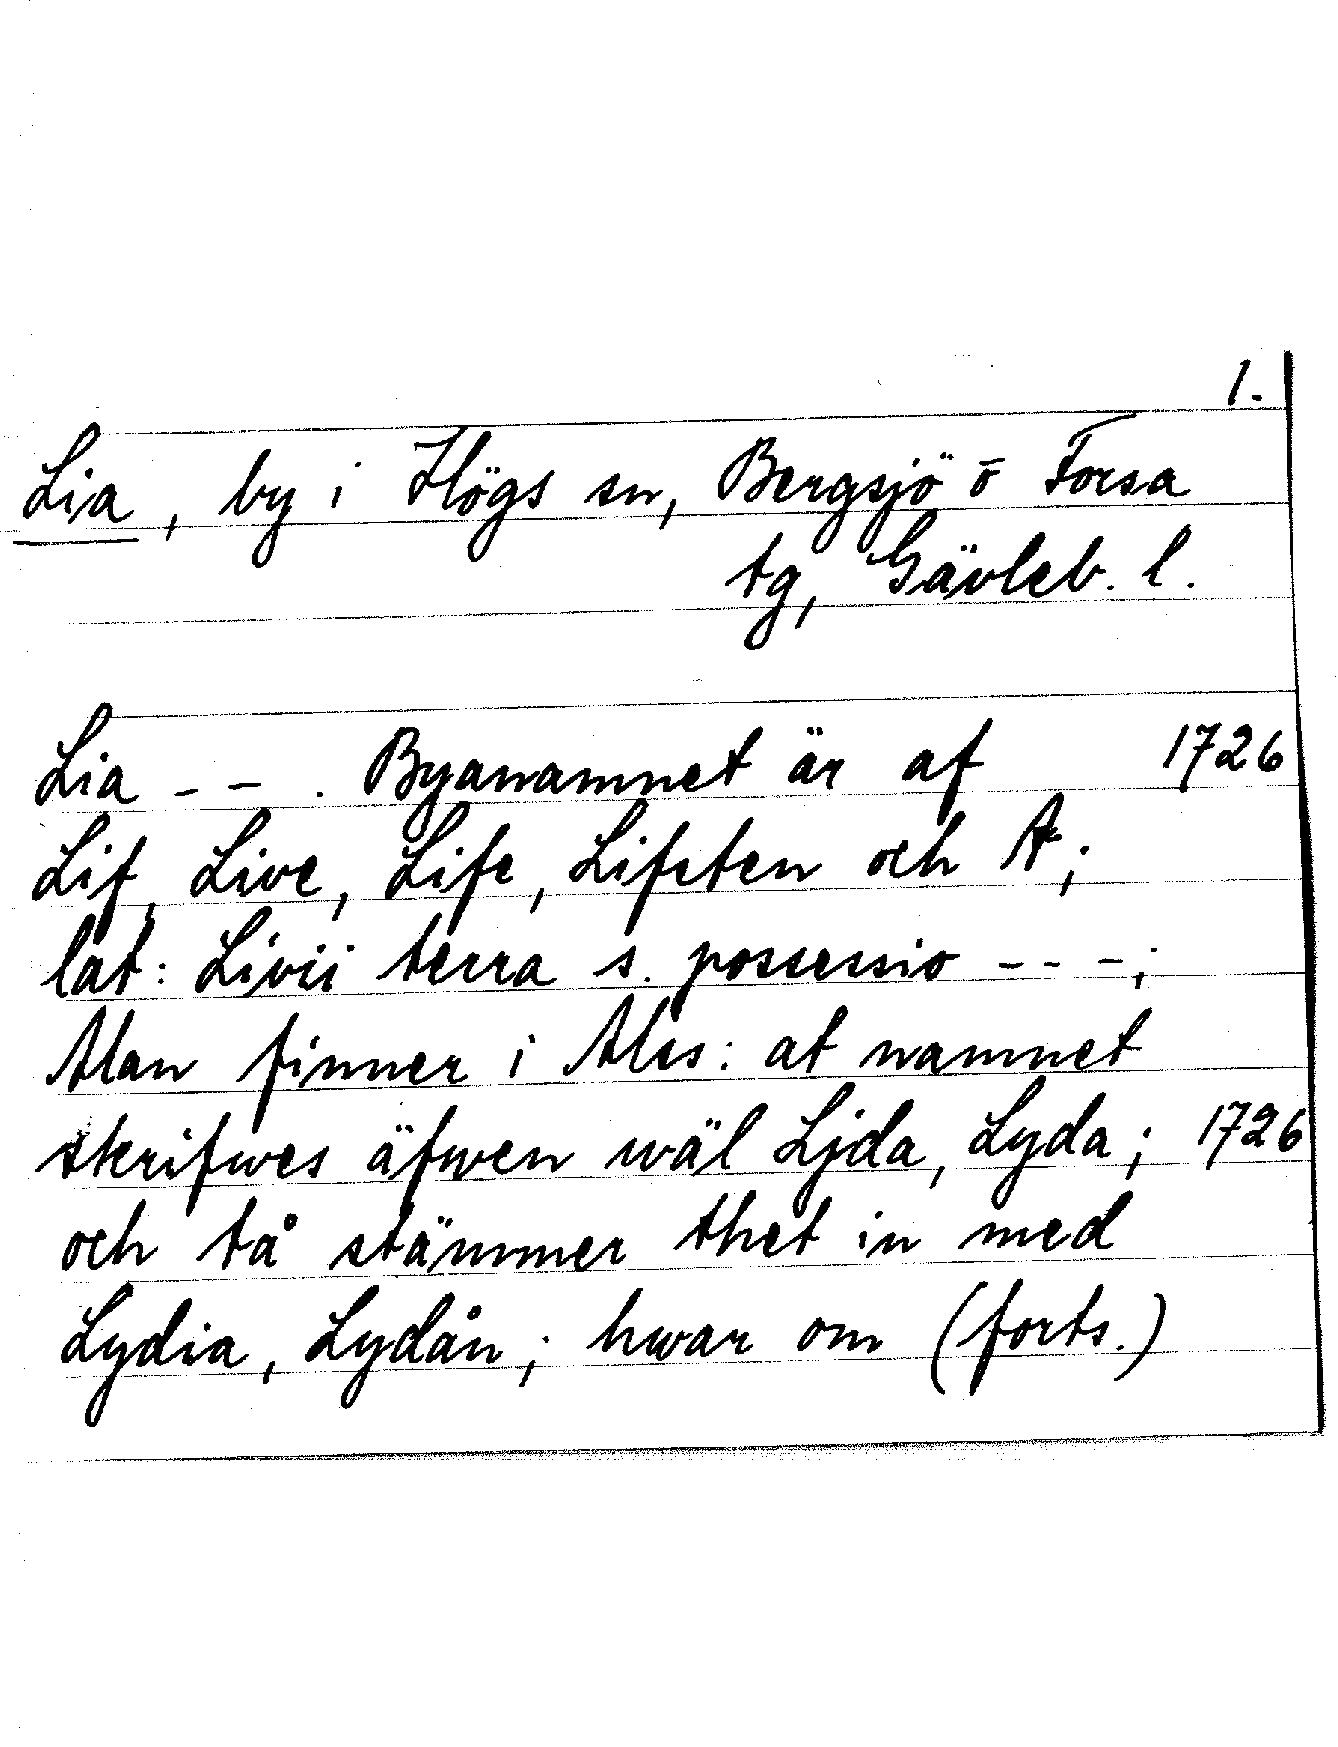 1.
Lia, by i Högs sn, Bergsjö o Forsa
tg, Gävleb. l.
Lia - - . Byanamnet är af 1726
Lif, Live, Life, Lifsten och A;
lat: Livii terra s. possessio - - -;
Man finner i Mss: at namnet
skrifwes äfwen wäl Ljda, Lyda; 1726
och tå stämmer thet in med
Lydia, Lydån; hwar om (forts.)